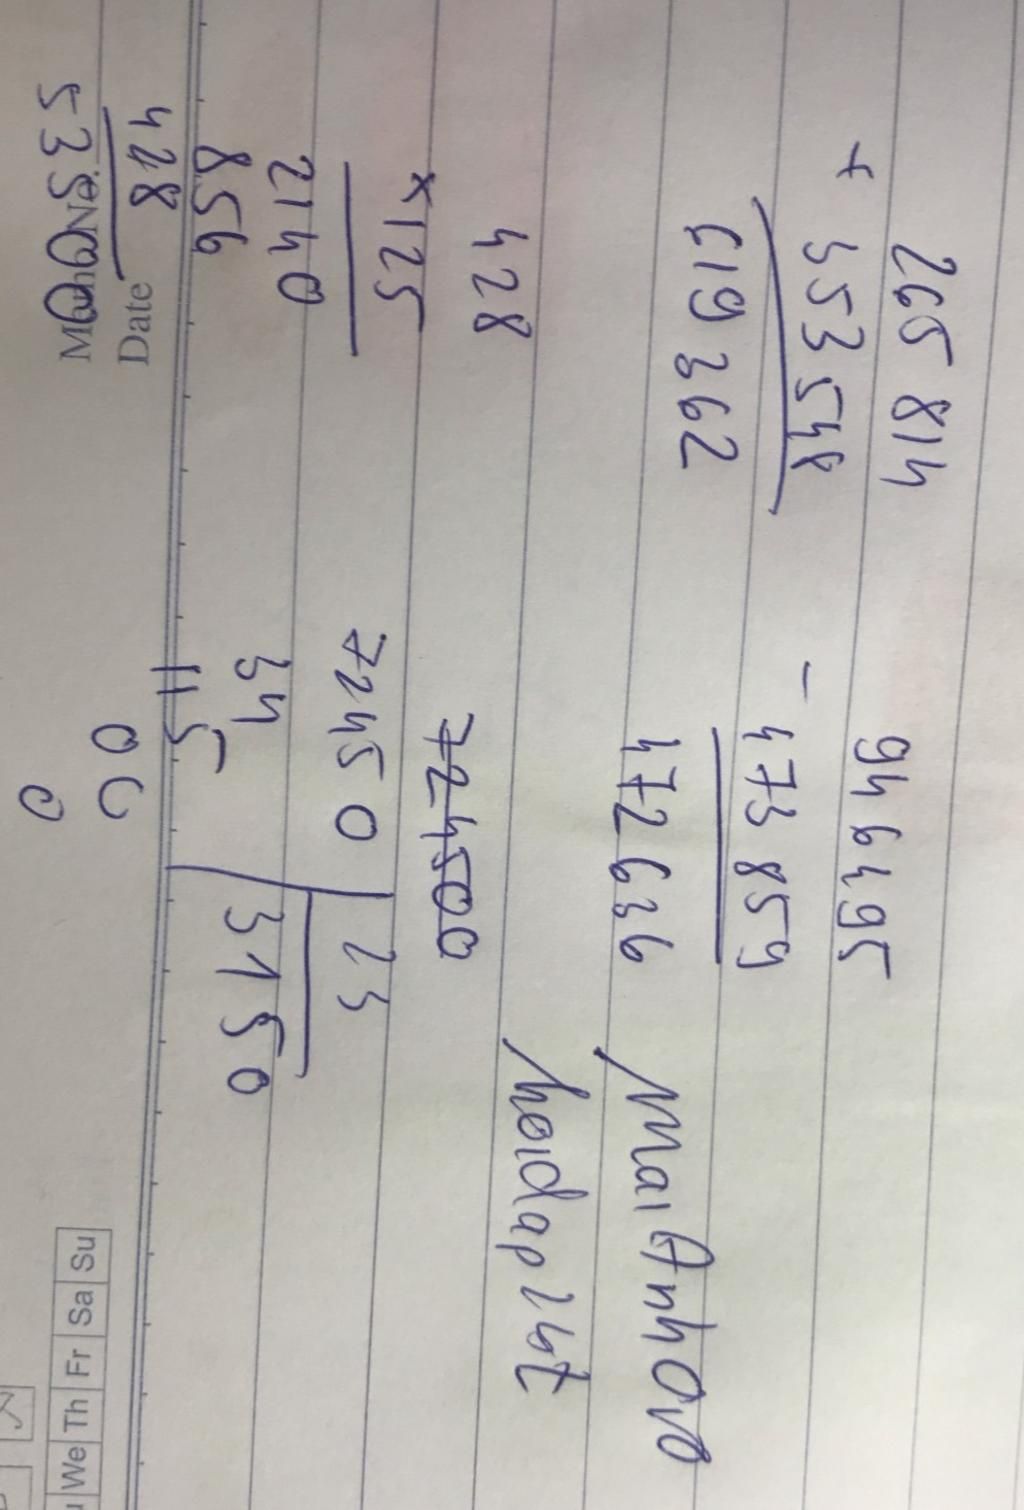 265 814
+ 353 548
619 362
946 495
- 473 859
472 636
MaiAnhOvO
hoidap247
428
×125
2140
856
428
53500
72450̶0̶
72450 23
34 3150
115
00
0
Date
No.
We Th Fr Sa Su